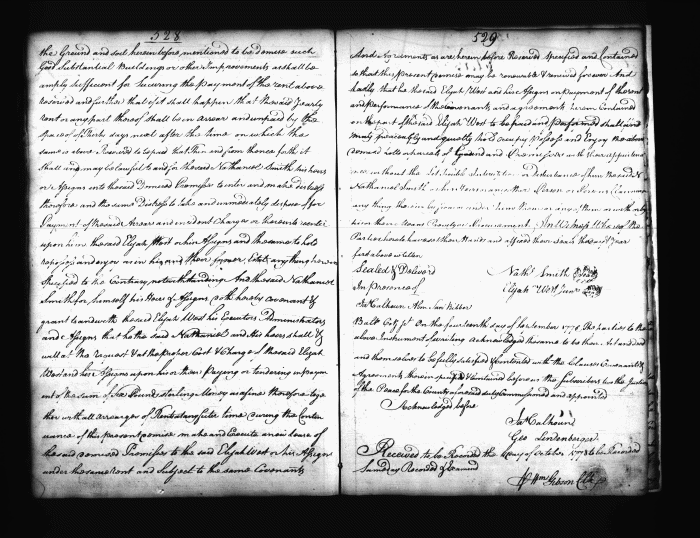 528
the Ground and soil herein before mentioned to be demise such
Good Substantial Buildings or other Improvements as shall be
amply sufficient for Securing the payment of the rent above
reserved and further that if it shall happen that the said yearly
rent or any part thereof shall be in arrear and unpaid by the
space of days next after the time on which the
same is above Reserved to be paid that then and from thence forth it
Shall and may be lawful to and for the said Nathaniel Smith his heirs
or Assigns into the said Demised Premises to enter and make distress
therefore and the same Distress to take and immediately dispose of for
Payment of the said Arrears and incident Charges or thereinto reenter
upon him the said Elijah West or his Assigns and the same to hold
repossess and enjoy as in his and their former Estate any thing herein
Specified to the Contrary notwithstanding And the said Nathaniel
Smith for himself his Heirs & Assigns doth hereby covenant &
grant to and with the said Elijah West his Executors Administrators
and Assigns that he the said Nathaniel and His heirs shall &
will at the request & at the proper Cost & Charge of the said Elijah
West and his Assigns upon his or their Paying or tendering in paym
ent of the sum of Six Pounds sterling Money as a fine therefore toge
ther with all arrearages of Rent at any time during the Contin
uance of this present demise make and Execute a new lease of
the said demised Premises to the said Elijah West or his Assigns
under the same Rent and Subject to the same Covenants
529
And Agreements as are herein before Reserved Specified and Contained
so that this present demise may be renewable & renewed for ever And
lastly that he the said Elijah West and his Assigns on payment of the rent
and performance of the Covenants and agreements herein Contained
on the part of the said Elijah West to be paid and performed shall and
may peaceably and quietly hold Occupy Possess and Enjoy the above
demised lotts or parcels of Ground and Premisses with their appurtenan
ces without the let suit interruption or disturbance of him the said
Nathaniel Smith or his heirs or any other Person or Persons Claiming
any thing therein by from or under him them or any of them
In Witness Whereof the
Parties hereto have set their Hands and affixed their seals the day & year
first above written
Sealed & Deliverd
In presence of
Nathl Smith Seal
Elijah West Junr Seal
Ja Calhoun
Balt County Sc On the fourteenth day of September 1778 The parties to the
above Instrument of writing acknowledged the same to be their Act and deed
and themselves to be fully satisfied & contented with the Clauses Covenants &
Agreements therein specified & Contained before us the Subscribers two the Justices
of the Peace for the County aforesaid duly Commissioned and appointed
Acknowledged before
Ja Calhoun
Geo Lindenberger
Received to be Recorded the day of October 1778 to be Recorded
Same day Recorded & Examined
Wm Gibson Clk